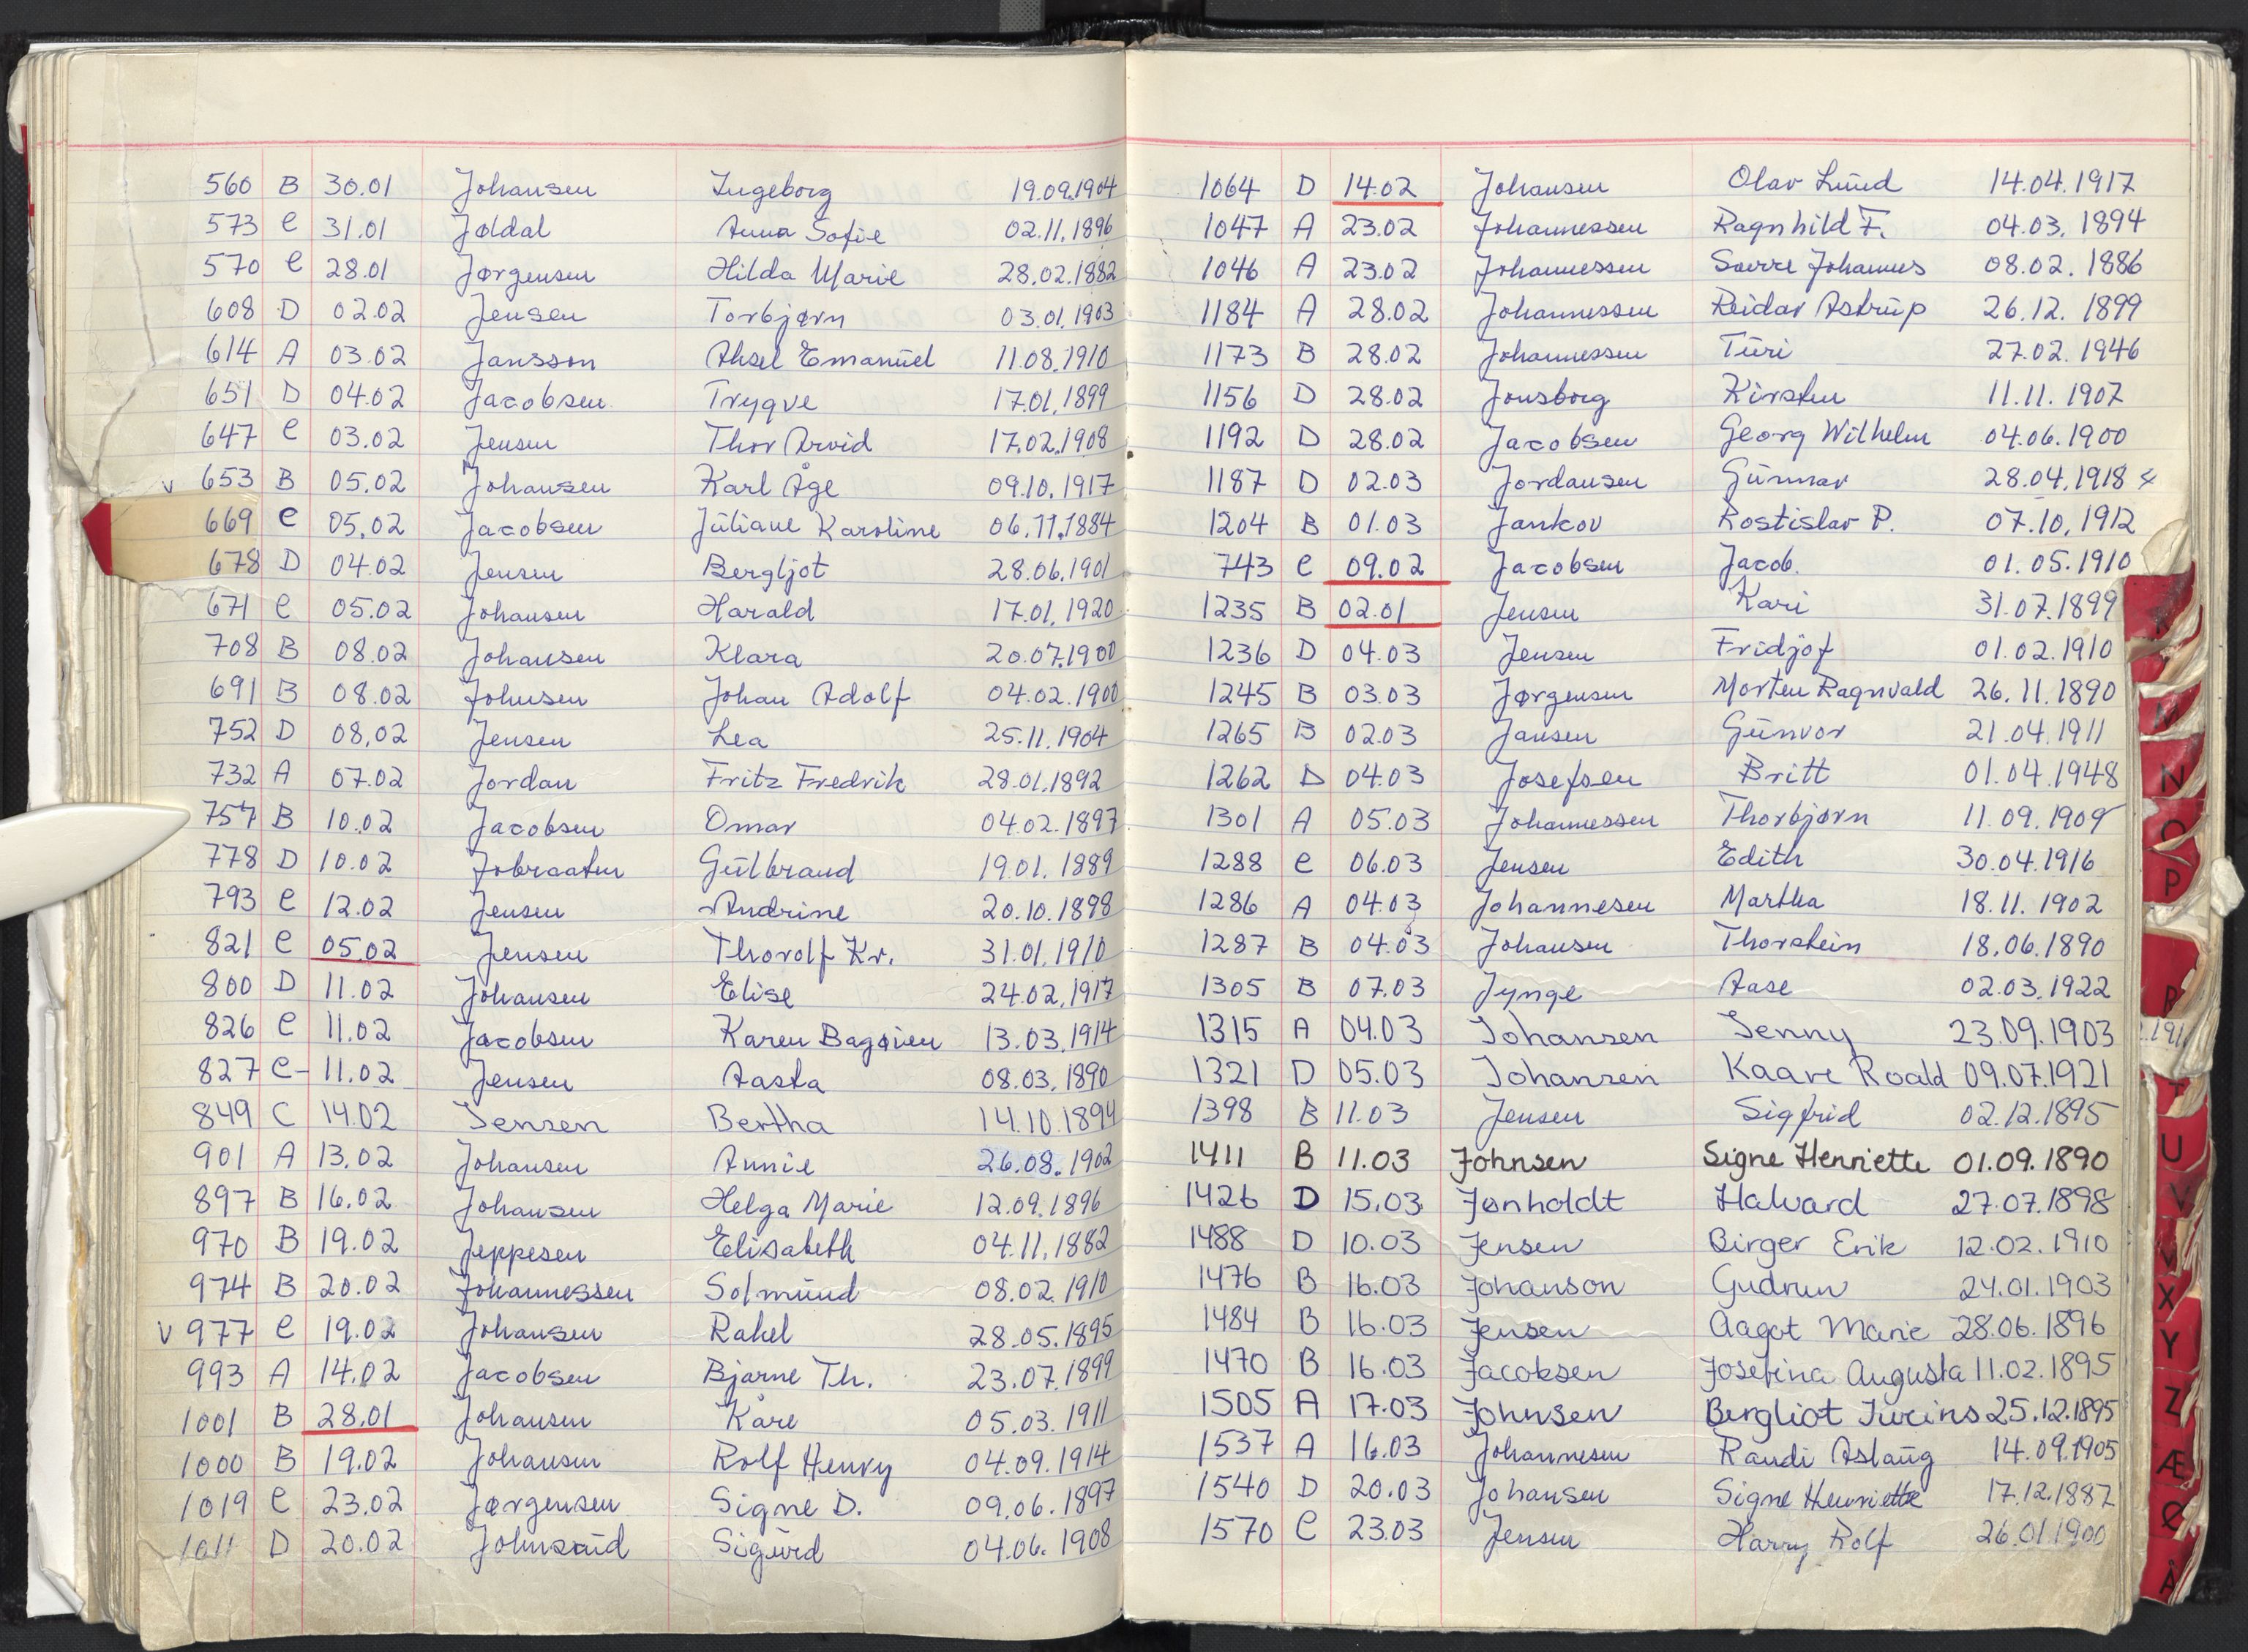 560 B 30.01 Johansen Ingeborg 19.09.1904
573 C 31.01 Jøldal Anna Sofie 02.11.1896
570 C 28.01 Jørgensen Hilda Marie 28.02.1882
608 D 02.02 Jensen Torbjørn 03.01.1903
614 A 03.02 Jansson Aksel Emanuel 11.08.1910
651 D 04.02 Jacobsen Trygve 17.01.1899
647 C 03.02 Jensen Thor Arvid 17.02.1908
v 653 B 05.02 Johansen Karl Åge 09.10.1917
669 C 05.02 Jacobsen Juliane Karoline 06.11.1884
678 D 04.02 Jensen Bergljot 28.06.1901
671 C 05.02 Johansen Harald 17.01.1920
708 B 08.02 Johansen Klara 20.07.1900
691 B 08.02 Johnsen Johan Adolf 04.02.1900
752 D 08.02 Jensen Lea 25.11.1904
732 A 07.02 Jordan Fritz Fredrik 28.01.1892
B 10.02 Jacobsen Omar 04.02.1897
778 D 10.02 Jobraaten Gulbrand 19.01.1889
793 C 12.02 Jensen Andrine 20.10.1898
821 C 05.02 Jensen Thorolf Kr. 31.01.1910
800 D 11.02 Johansen Elise 24.02.1917
826 C 11.02 Jacobsen Karen Bagøien 13.03.1914
827 C- 11.02 Jensen Aasta 08.03.1890
849 C 14.02 Jensen Bertha 14.10.1894
901 A 13.02 Johansen Annie 26.08.1902
897 B 16.02 Johansen Helga Marie 12.09.1896
970 B 19.02 Jeppesen Elisabeth 04.11.1882
974 B 20.02 Johannessen Solmund 08.02.1910
v 977 C 19.02 Johansen Rakel 28.05.1895
993 A 14.02 Jacobsen Bjarne Th. 23.07.1899
1001 B 28.01 Johansen Kåre 05.03.1911
1000 B 19.02 Johansen Rolf Henry 04.09.1914
1019 C 23.02 Jørgensen Signe D. 09.06.1897
1011 D 20.02 Johnsrud Sigurd 04.06.1908
1064 D 14.02 Johansen Olav Lund 14.04.1917
1047 A 23.02 Johannessen Ragnhild F. 04.03.1894
1046 A 23.02 Johannessen Sverre Johannes 08.02.1886
1184 A 28.02 Johannessen Reidar Astrup 26.12.1899
1173 B 28.02 Johannessen Turi 27.02.1946
1156 D 28.02 Jonsborg Kirsten 11.11.1907
1192 D 28.02 Jacobsen Georg Wilhelm 04.06.1900
1187 D 02.03 Jordansen Gunnar 28.04.1918 x
1204 B 01.03 Jankov Rostislav P. 07.10.1912
743 C 09.02 Jacobsen Jacob. 01.05.1910
1235 B 02.01 Jensen Kari 31.07.1899
1236 D 04.03 Jensen Fridjof 01.02.1910
1245 B 03.03 Jørgensen Morten Ragnvald 26.11.1890
1265 B 02.03 Jansen Gunvor 21.04.1911
1262 D 04.03 Josefsen Britt 01.04.1948
1301 A 05.03 Johannessen Thorbjørn 11.09.1909
1288 C 06.03 Jensen Edith 30.04.1916
1286 A 04.03 Johannesen Martha 18.11.1902
1287 B 04.03 Johansen Thorstein 18.06.1890
1305 B 07.03 Jynge Aase 02.03.1922
1315 A 04.03 Johansen Jenny 23.09.1903
1321 D 05.03 Johansen Kaare Roald 09.07.1921
1398 B 11.03 Jensen Sigfrid 02.12.1895
1411 B 11.03 Johnsen Signe Henriette 01.09.1890
1426 D 15.03 Jønholdt Halvard 27.07.1898
1488 D 10.03 Jensen Birger Erik 12.02.1910
1476 B 16.03 Johanson Gudrun 24.01.1903
1484 B 16.03 Jensen Aagot Marie 28.06.1896
1470 B 16.03 Jacobsen Josefina Augusta 11.02.1895
1505 A 17.03 Johnsen Bergliot 25.12.1895
1537 A 16.03 Johannesen Randi Aslaug 14.09.1905
1540 D 20.03 Johansen Signe Henriette 17.12.1887
1570 C 23.03 Jensen Harry Rolf 26.01.1900
M
N
O
P
R
T
U
V
X
Y
Z
Æ
Ø
Å